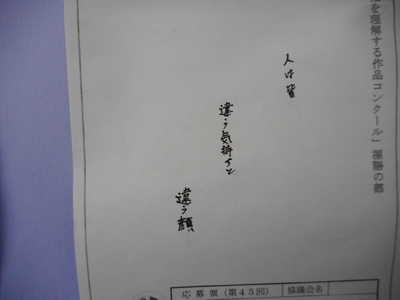 を理解する作品コンクール」標語の部
人は皆
違う気持ちと
違う顔
応募票(第45回)
協議会名